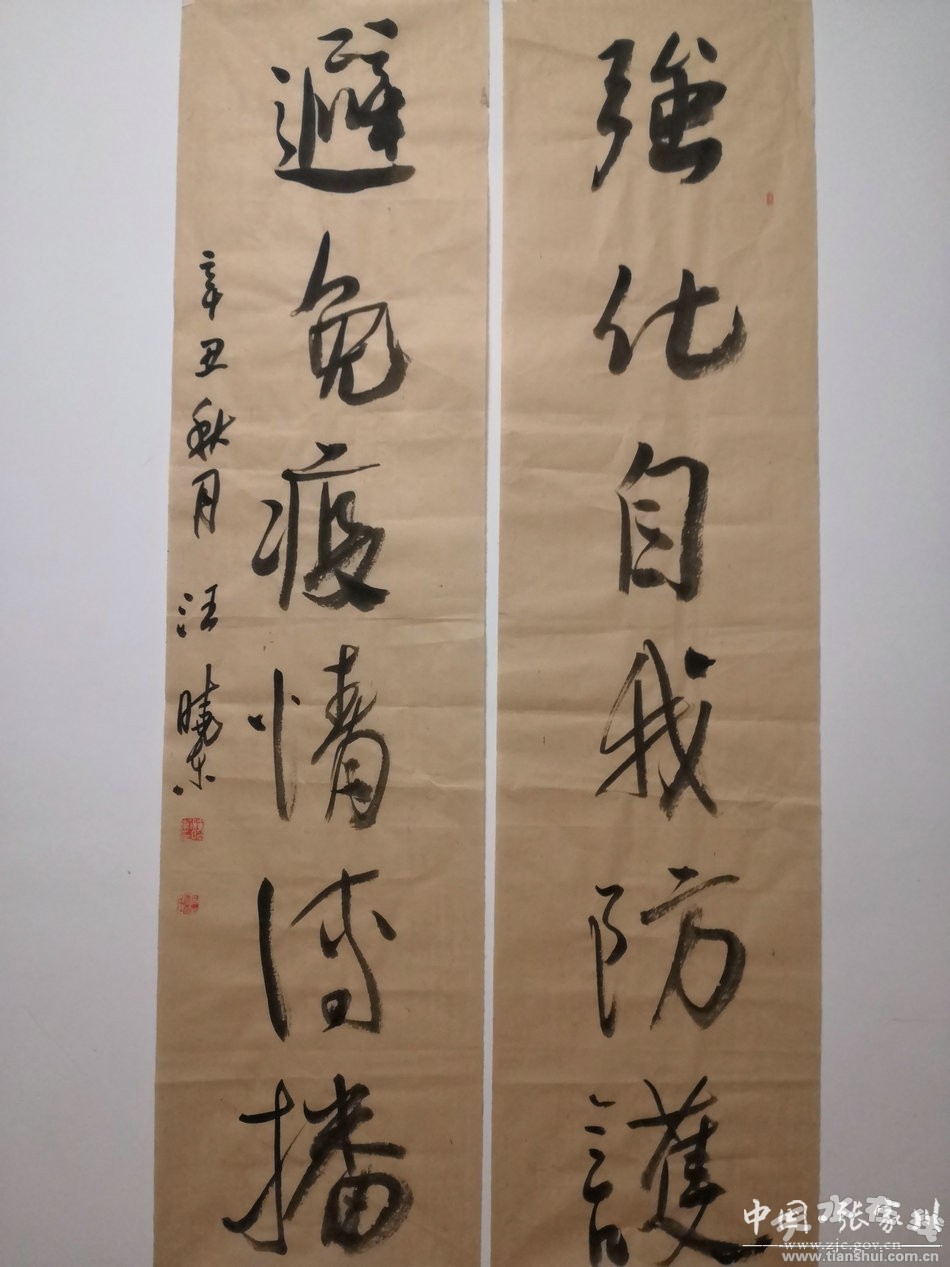 強化自我防護
避免疫情傳播
辛丑秋月 汪曉東
中国·张家川
www.zjc.gov.cn
www.tianshui.com.cn